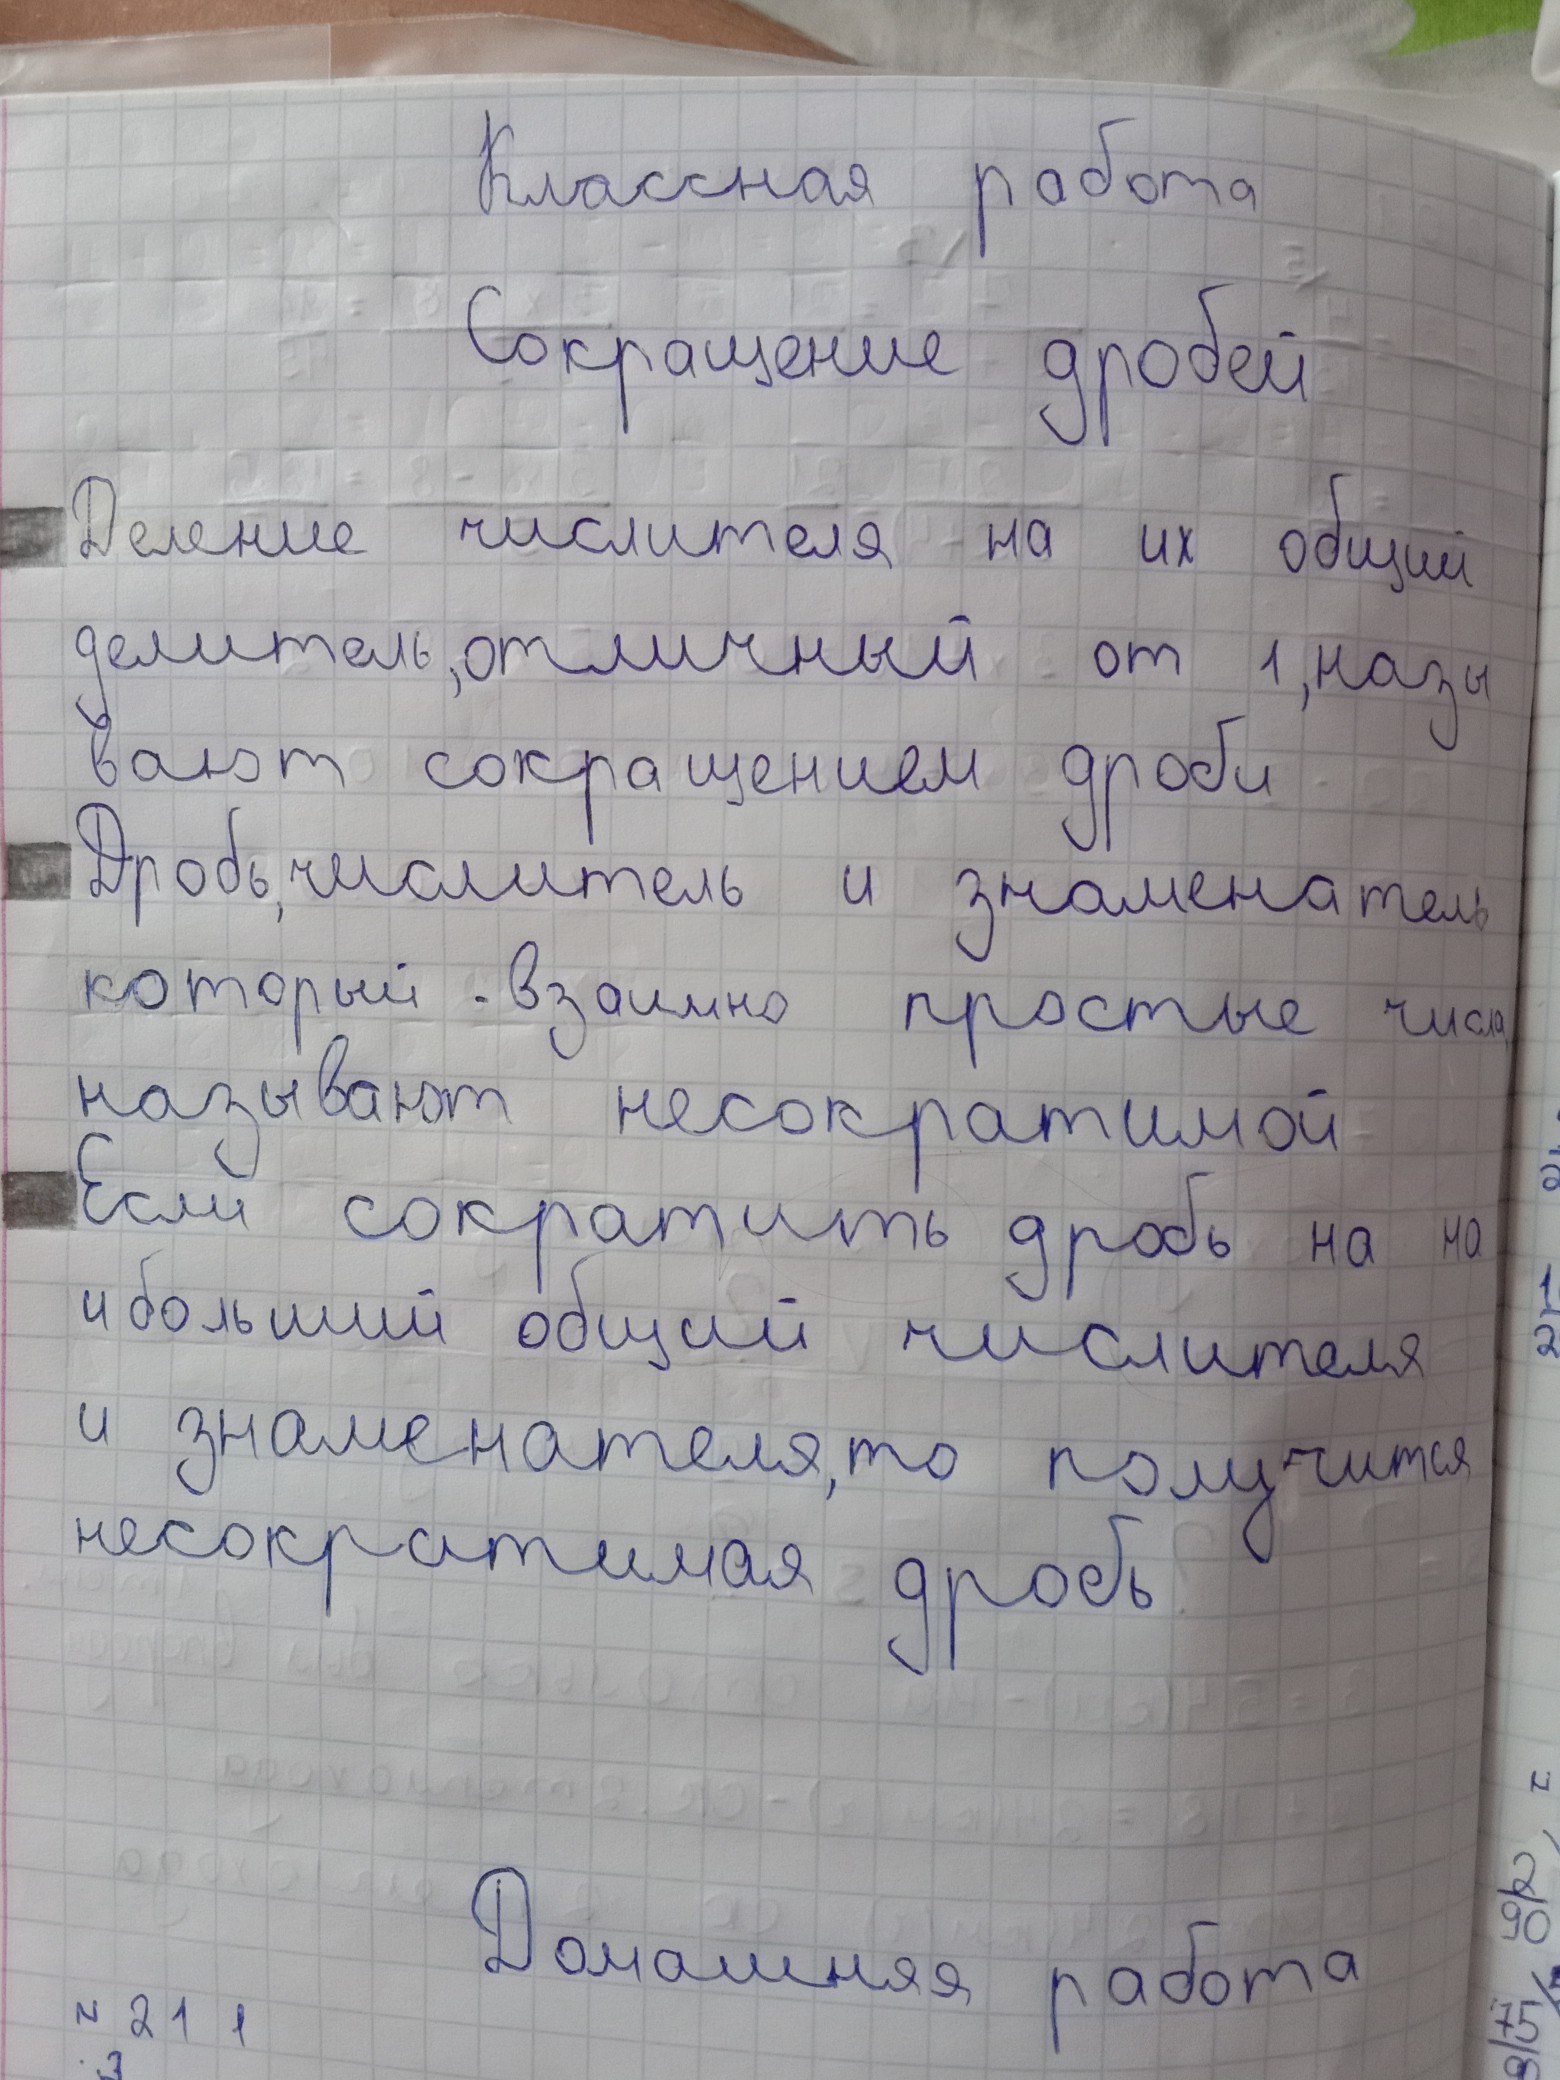 Классная работа
Сокращение дробей
Деление числителя на их общий
делитель, отличный от 1, назы
вают сокращением дроби
Дробь, числитель и знаменатель
который - взаимно простые числа,
называют несократимой
Если сократить дробь на на
ибольший общий числителя
и знаменателя, то получится
несократимая дробь
Домашняя работа
N 211